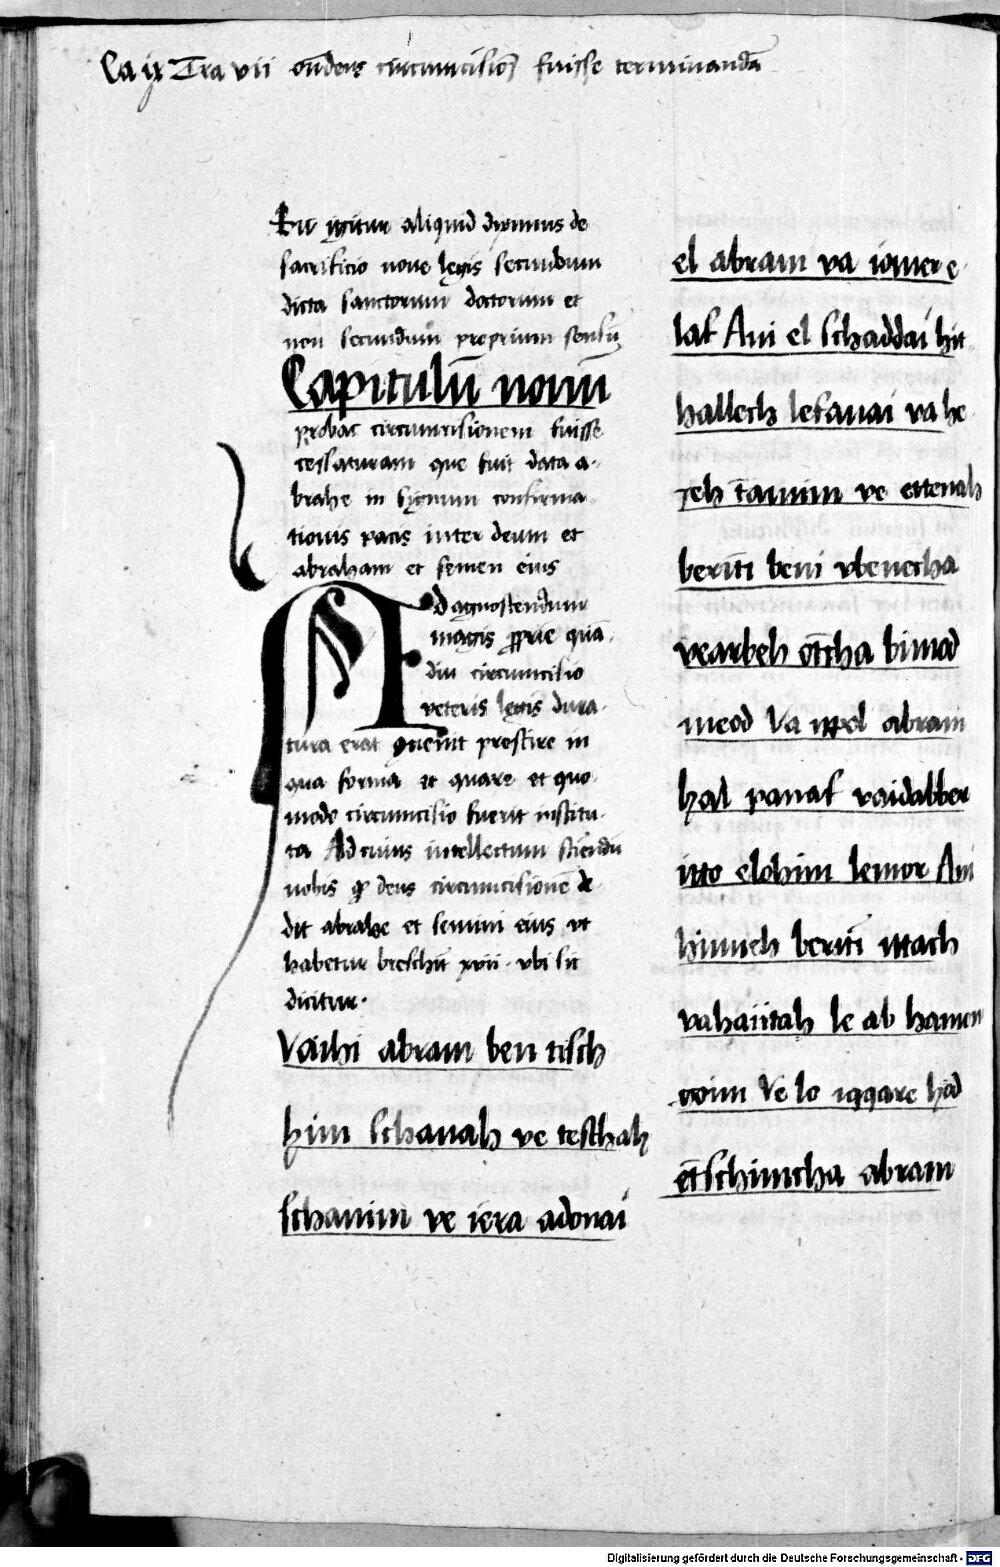 Ca ix Tra vii oñdens circumcisioẽ fuisse terminandã
igitur aliquid diximus de
sacrificio nove legis secundum
dicta sanctorum datorum et
non secundum proprium sensũ
Capitulũ nonũ
probat circumcisionem fuisse
cessaturam que fuit data a-
brahe in signum confirma-
tionis pacis inter deum et
abraham et semen eius
Ad agnoscendum
magis pprie quã-
diu circumcisio
veteris legis dura-
tura erat quenit prescire in
qua forma et quare et quo-
modo circumcisio fuerit institu-
ta Ad cuius intellectum sciendũ
nobis qp deus circumcisionẽ de-
dit abrahe et semini eius vt
habetur breschit xvii vbi sic
dicitur.
Vaihi abram ben tisch
him schanah ve teschah
schanim ve iera adonai
el abram va iomer e
laf Ani el schaddai hit-
hallech lefanai va he
zeh tamim ve ettenah
beriti beni vbenecha
vearbeh otcha bimod
meod Va ippol abram
hal panaf vaidabber
itto elohim lemor Ani
hinneh beriti ittach
vahaiitah le ab hamon
goim Ve lo iqqare hod
etschimcha abram
Digitalisierung gefördert durch die Deutsche Forschungsgemeinschaft - DFG